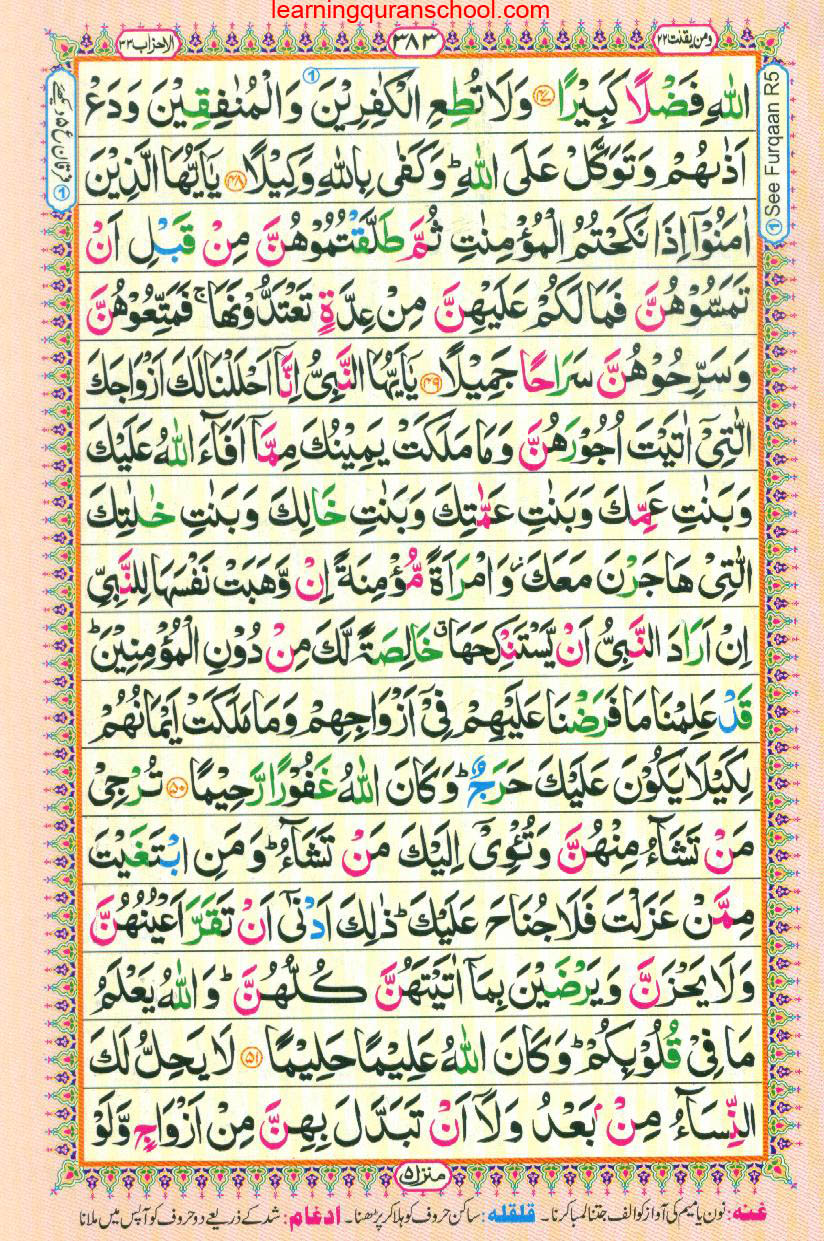 learningquranschool.com
ومن يقنت ٢٢
٣٨٣
الاحزاب ٣٣
①See Furqaan R5
اللهِ فَضْلًا كَبِيْرًا ﴿۴۷﴾ وَلَا تُطِعِ الْكٰفِرِيْنَ وَالْمُنٰفِقِيْنَ وَدَعْ
اَذٰىهُمْ وَتَوَكَّلْ عَلَى اللهِ ؕ وَكَفٰى بِاللهِ وَكِيْلًا ﴿۴۸﴾ يٰۤاَيُّهَا الَّذِيْنَ
اٰمَنُوْۤا اِذَا نَكَحْتُمُ الْمُؤْمِنٰتِ ثُمَّ طَلَّقْتُمُوْهُنَّ مِنْ قَبْلِ اَنْ
تَمَسُّوْهُنَّ فَمَا لَكُمْ عَلَيْهِنَّ مِنْ عِدَّةٍ تَعْتَدُّوْنَهَا ۚ فَمَتِّعُوْهُنَّ
وَسَرِّحُوْهُنَّ سَرَاحًا جَمِيْلًا ﴿۴۹﴾ يٰۤاَيُّهَا النَّبِىُّ اِنَّاۤ اَحْلَلْنَا لَكَ اَزْوَاجَكَ
الّٰتِىْۤ اٰتَيْتَ اُجُوْرَهُنَّ وَمَا مَلَكَتْ يَمِيْنُكَ مِمَّاۤ اَفَآءَ اللهُ عَلَيْكَ
وَبَنٰتِ عَمِّكَ وَبَنٰتِ عَمّٰتِكَ وَبَنٰتِ خَالِكَ وَبَنٰتِ خٰلٰتِكَ
الّٰتِىْ هَاجَرْنَ مَعَكَ ؗ وَامْرَاَةً مُّؤْمِنَةً اِنْ وَّهَبَتْ نَفْسَهَا لِلنَّبِىِّ
اِنْ اَرَادَ النَّبِىُّ اَنْ يَّسْتَنْكِحَهَا ۗ خَالِصَةً لَّكَ مِنْ دُوْنِ الْمُؤْمِنِيْنَ ؕ
قَدْ عَلِمْنَا مَا فَرَضْنَا عَلَيْهِمْ فِىْۤ اَزْوَاجِهِمْ وَمَا مَلَكَتْ اَيْمَانُهُمْ
لِكَيْلَا يَكُوْنَ عَلَيْكَ حَرَجٌ ؕ وَكَانَ اللهُ غَفُوْرًا رَّحِيْمًا ﴿۵۰﴾ تُرْجِىْ
مَنْ تَشَآءُ مِنْهُنَّ وَتُـْٔوِىْۤ اِلَيْكَ مَنْ تَشَآءُ ؕ وَمَنِ ابْتَغَيْتَ
مِمَّنْ عَزَلْتَ فَلَا جُنَاحَ عَلَيْكَ ؕ ذٰلِكَ اَدْنٰۤى اَنْ تَقَرَّ اَعْيُنُهُنَّ
وَلَا يَحْزَنَّ وَيَرْضَيْنَ بِمَاۤ اٰتَيْتَهُنَّ كُلُّهُنَّ ؕ وَاللهُ يَعْلَمُ
مَا فِىْ قُلُوْبِكُمْ ؕ وَكَانَ اللهُ عَلِيْمًا حَلِيْمًا ﴿۵۱﴾ لَا يَحِلُّ لَكَ
النِّسَآءُ مِنْۢ بَعْدُ وَلَاۤ اَنْ تَبَدَّلَ بِهِنَّ مِنْ اَزْوَاجٍ وَّلَوْ
منزل ۵
غنه: نون یا میم کی آواز کو الف جتنا لمبا کرنا۔ قلقله: ساکن حروف کو ہلا کر پڑھنا۔ ادغام: شد کے ذریعے دو حروف کو آپس میں ملانا